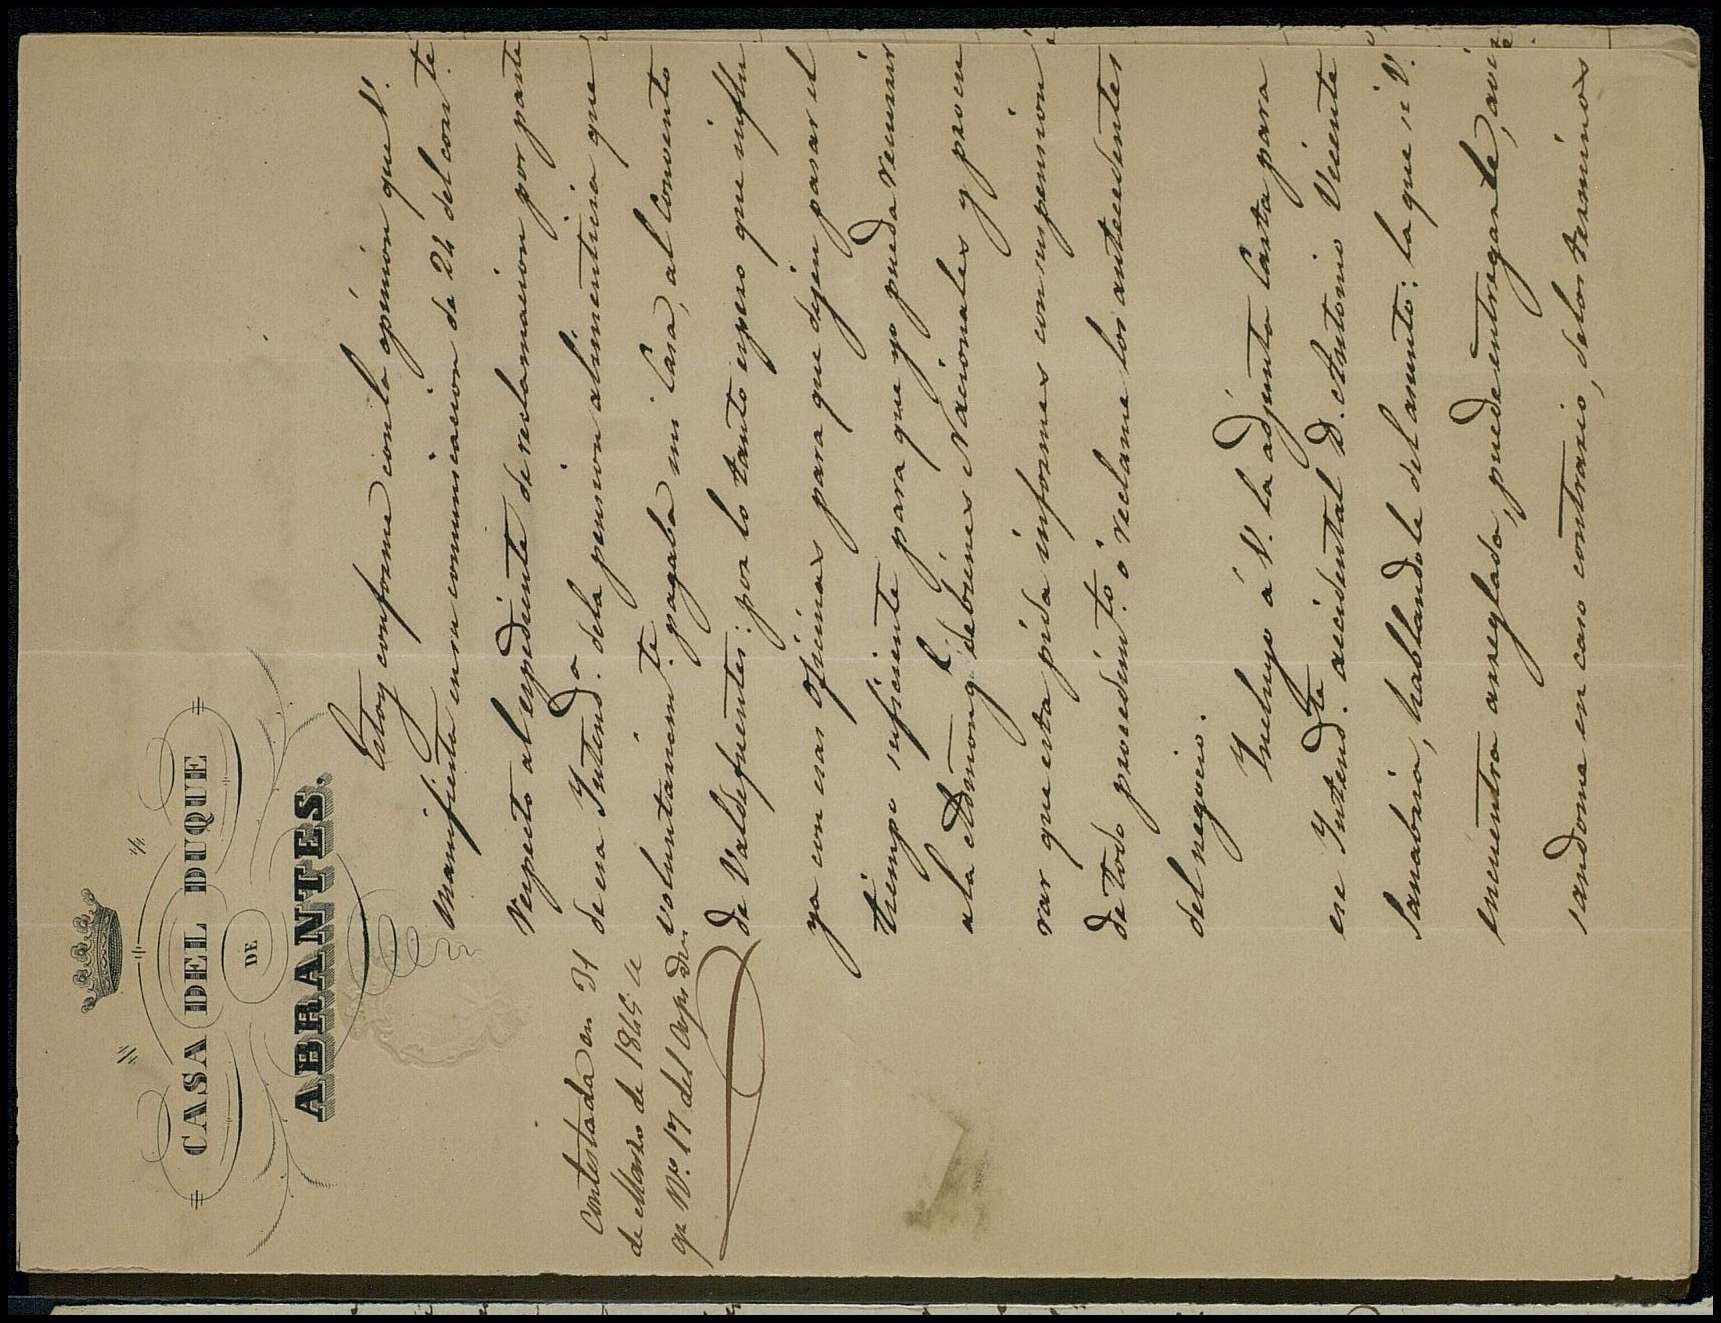 CASA DEL DUQUE
DE
ABRANTES.
Contestada en 31
de Marzo de 1845 le
qe Nº. 17 del Expedte
Estoy conforme con la opinion que V.
manifiesta en su comunicacion de 24 del corrte.
respecto al expediente de reclamacion por parte
de esa Intenda. de la pension alimenticia que
voluntariamte. pagaba mi Casa, al Convento
de Valdefuentes: por lo tanto espero que influ
ya con esas oficinas para que dejen pasar el
tiempo suficiente para que yo pueda recurrir
a la Admon gl. de bienes Nacionales y procu
rar que esta pida informes con suspension
de todo procedimto. o reclame los antecedentes
del negocio.
Incluyo á V. la adjunta Carta para
ese Intendte. accidental D. Antonio Vicente
Sanabria, hablandole del asunto: la que si V.
encuentra arreglada, puede entregarle, avi
sandome en caso contrario, de los terminos